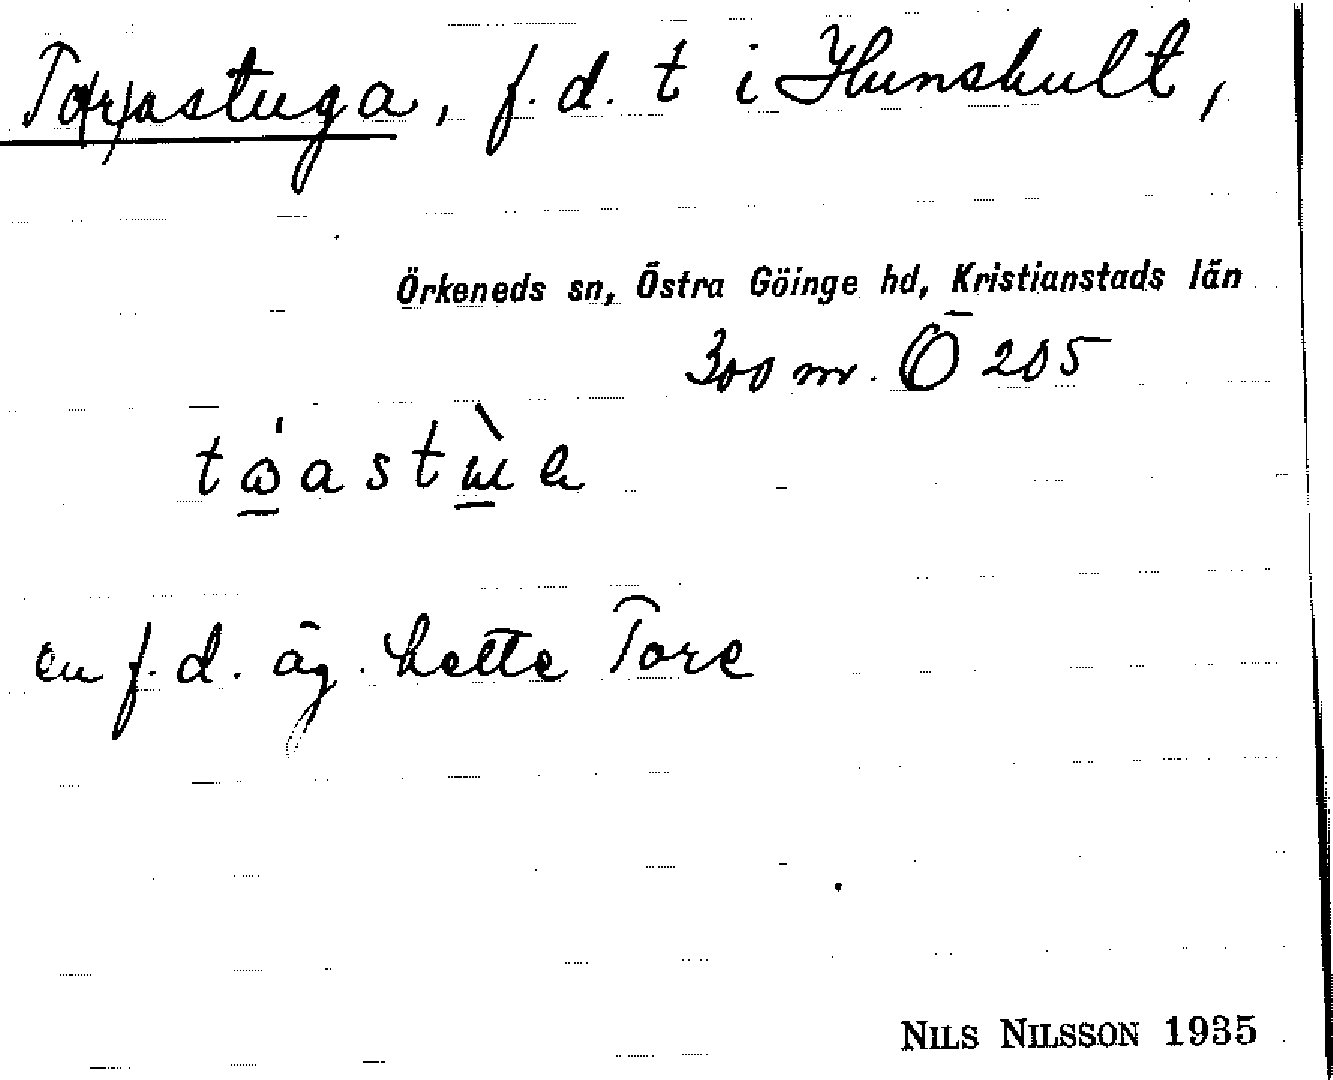 To(r)astuga, f.d. t i Hunshult,
Örkeneds sn, Östra Göinge hd, Kristianstads län
300 m. Ö 205
en f.d. äg. hette Tore
NILS NILSSON 1935